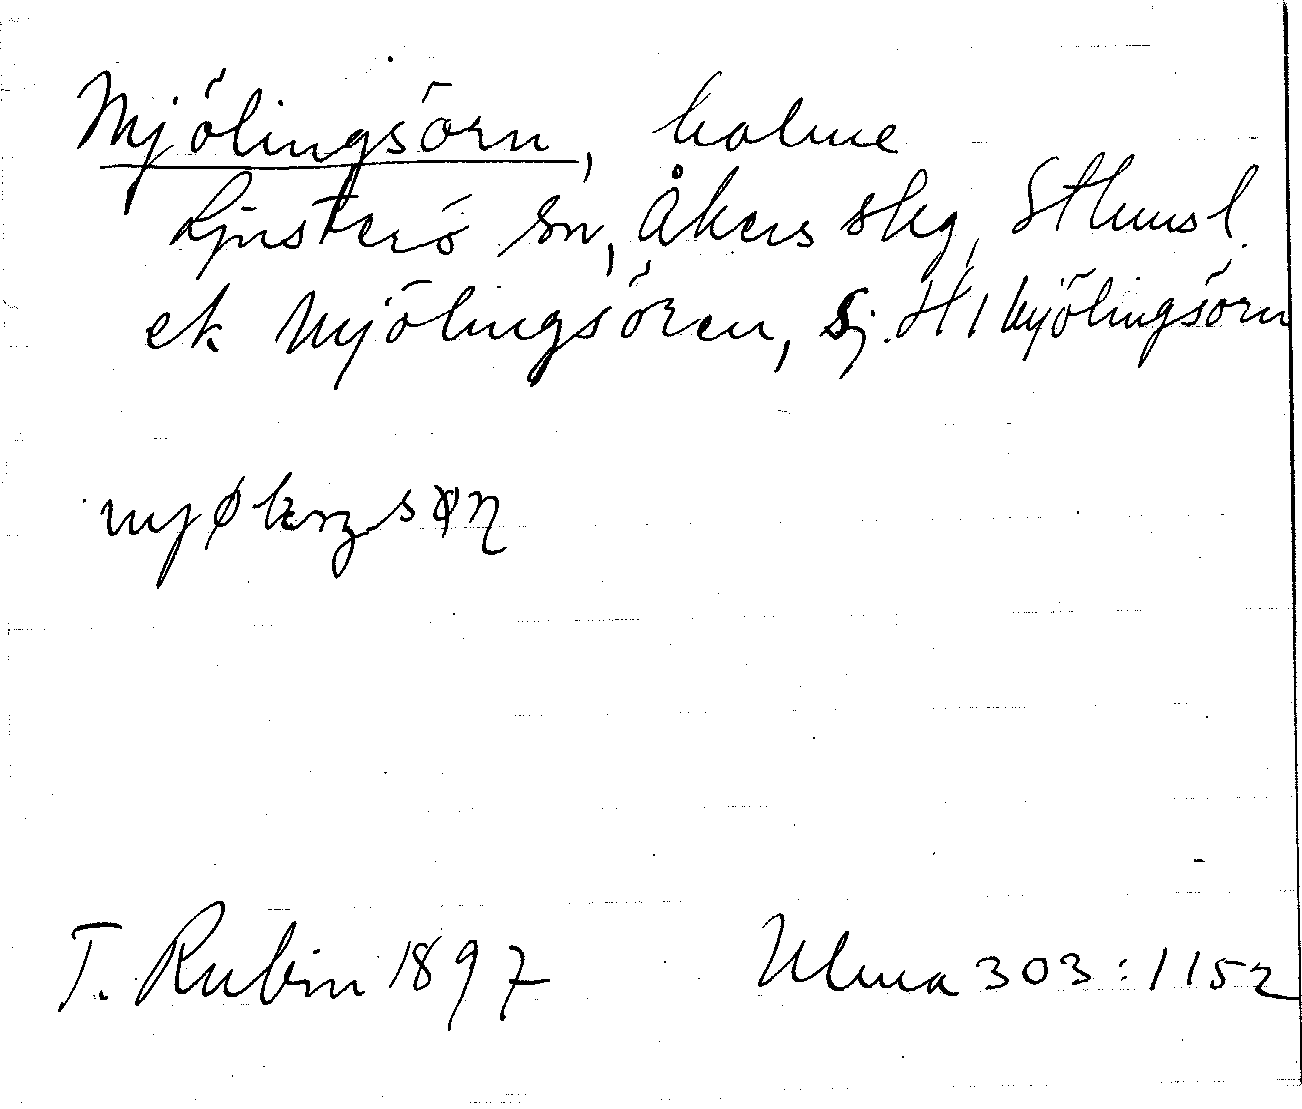 Mjölingsörn, holme
Ljusterö sn, Åkers skg, Sthmsl.
ek Mjölingsören, Sj. H 1 Mjölingsörn
T. Rubin 1897 Ulma 303:1152